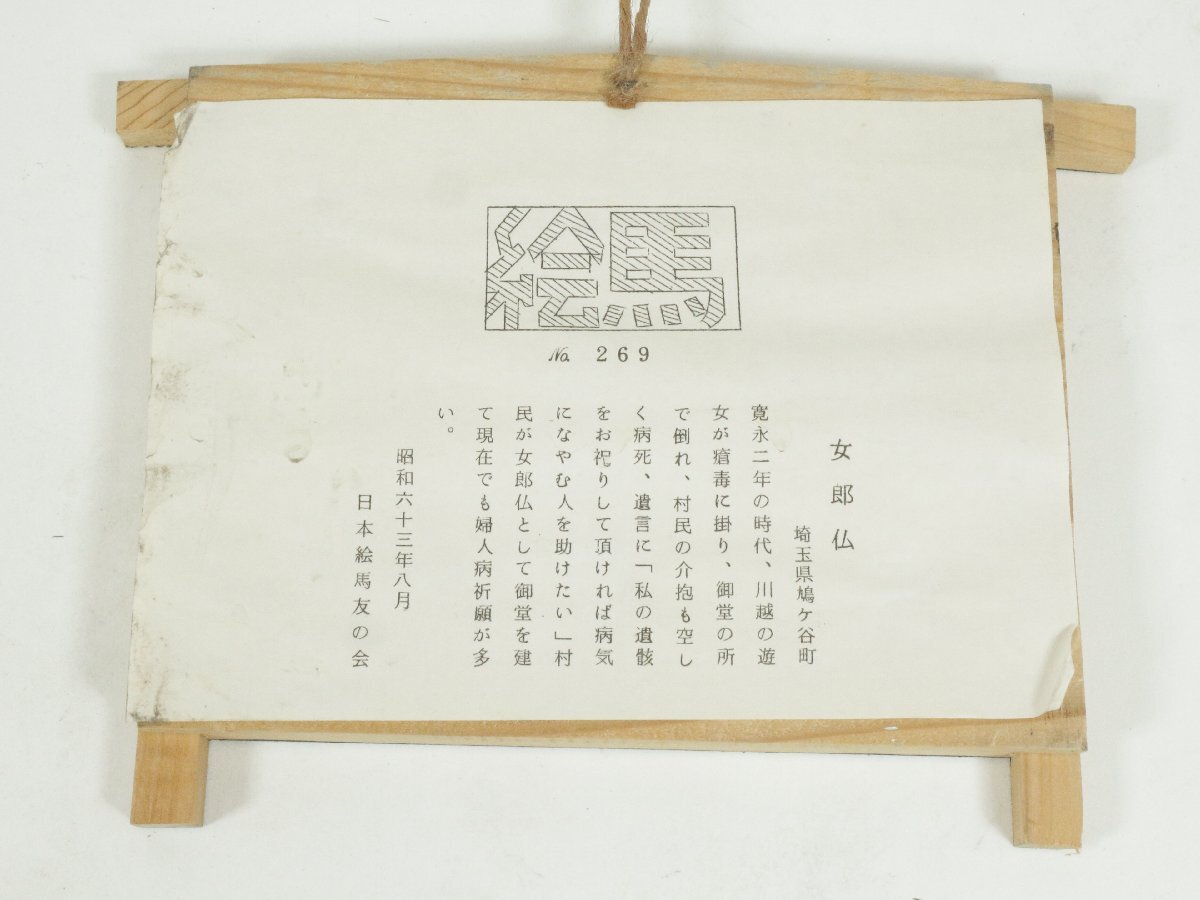 絵馬
No. 269
女郎仏
埼玉県鳩ケ谷町
寛永二年の時代、川越の遊
女が瘡毒に掛り、御堂の所
で倒れ、村民の介抱も空し
く病死、遺言に「私の遺骸
をお祀りして頂ければ病気
になやむ人を助けたい」村
民が女郎仏として御堂を建
て現在でも婦人病祈願が多
い。
昭和六十三年八月
日本絵馬友の会